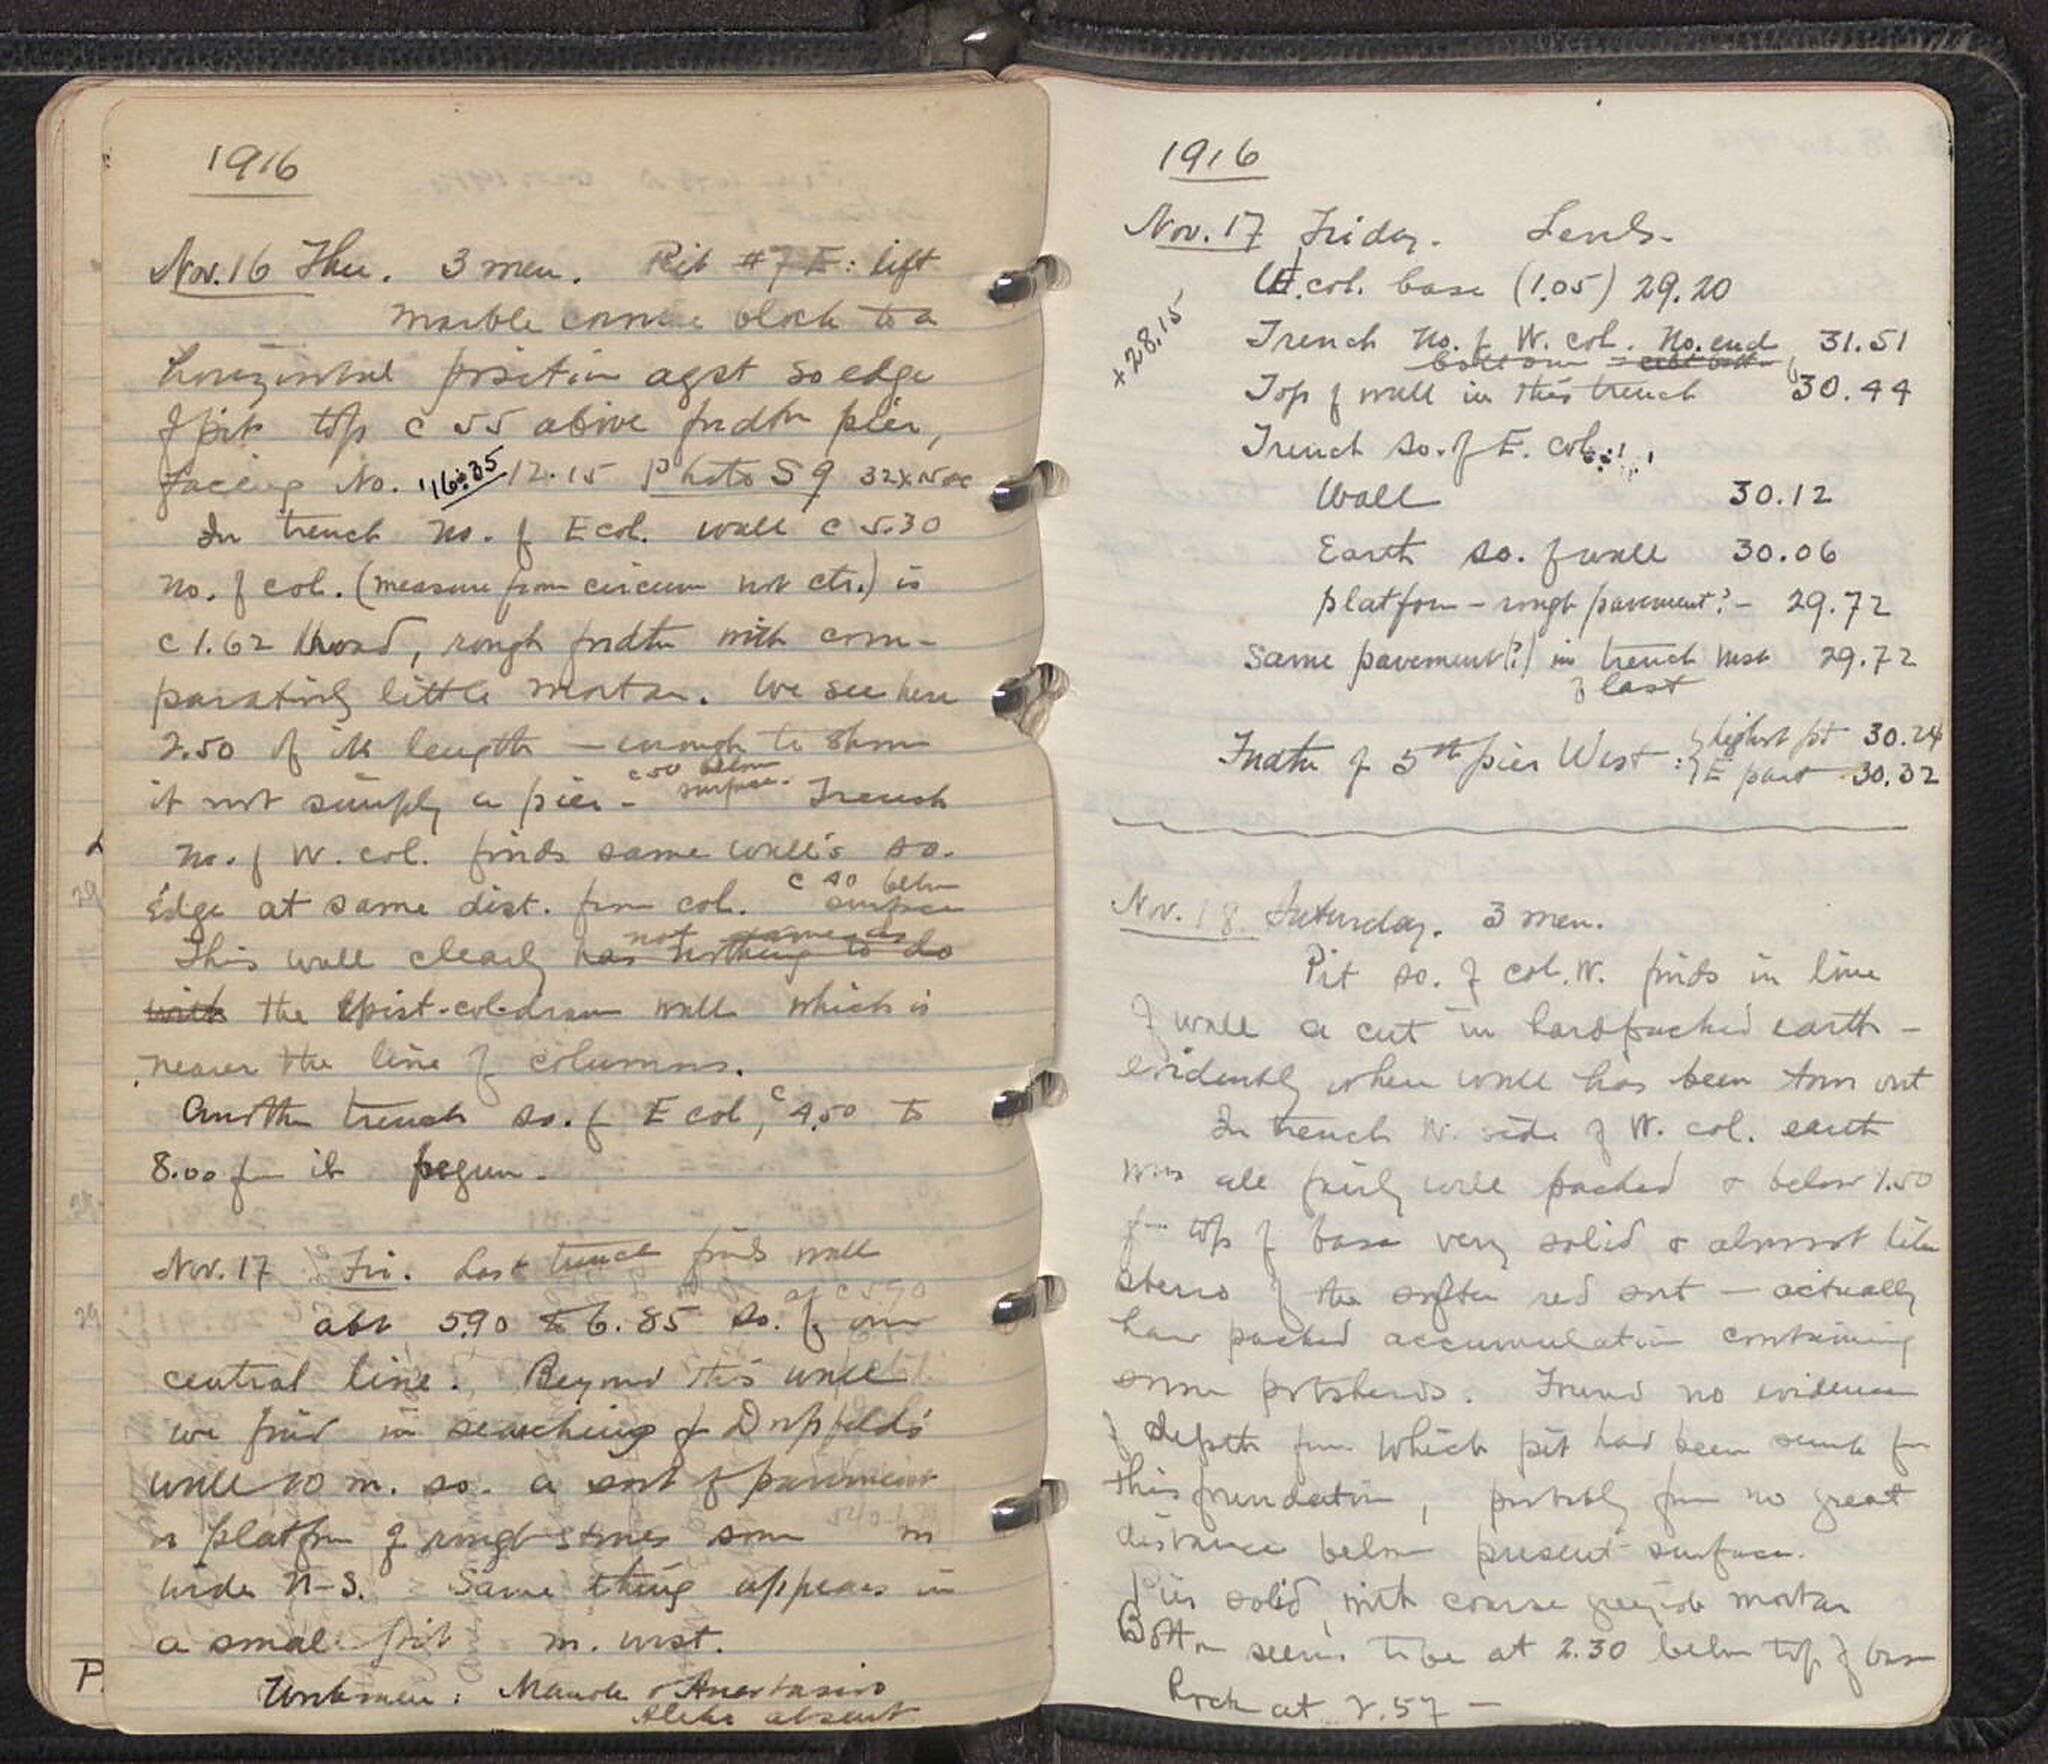 1916
Nov. 16 Thu. 3 men. Pit #7 E: lift
marble cornice block to a
horizontal position agst so edge
of pit top c 55 above fndtn pier,
facing No. '16:35 12.15 Photo S 9 32x
In trench no. of E col. wall c 5.30
no. of col. (measure from circum not ctr.) is
c 1.62 broad, rough fndtn with com-
paratively little mortar. We see here
2.50 of its length – enough to show
it not simply a pier – c 50 below surface. Trench
no. of W. col. finds same wall's so.
edge at same dist. from col. c 40 below surface
This wall clearly has nothing to do not same as
with the epist-col-drum wall which is
nearer the line of columns.
Another trench so. of E col, c 4.50 to
8.00 fm it begun.
Nov. 17 Fri. Last trench finds wall
abt 5.90 to 6.85 so. of our
central line. Beyond this wall
we find in searching f Dörpfeld's
wall 10 m. so. a sort of pavement
or platfm of rough stones some m
wide N-S. Same thing appears in
a small pit m. west.
Workmen: Manole & Anastasio
absent
1916
Nov. 17 Friday. Levels –
+28.15
W. col. base (1.05) 29.20
Trench no. of W. col. No. end 31.51
bottom
Top of wall in this trench 30.44
Trench so. of E. col.
Wall 30.12
Earth so. of wall 30.06
Platform – rough pavement? – 29.72
Same pavement(?) in trench west 29.72
of last
Fndtn of 5th pier West: { highest pt 30.24
E part 30.32
Nov. 18 Saturday. 3 men.
Pit so. of col. W. finds in line
of wall a cut in hardpacked earth –
evidently where wall has been torn out
In trench W. side of W. col. earth
was all fairly well packed & below 1.50
fm top of base very solid & almost like
stereo of the softer red sort – actually
hard packed accumulation containing
some potsherds. Found no evidence
of depth from which pit had been sunk for
this foundation, probably fm no great
distance below present surface.
Pier solid, with coarse greyish mortar
Bottom seems to be at 2.30 below top of base
Rock at 2.57 –